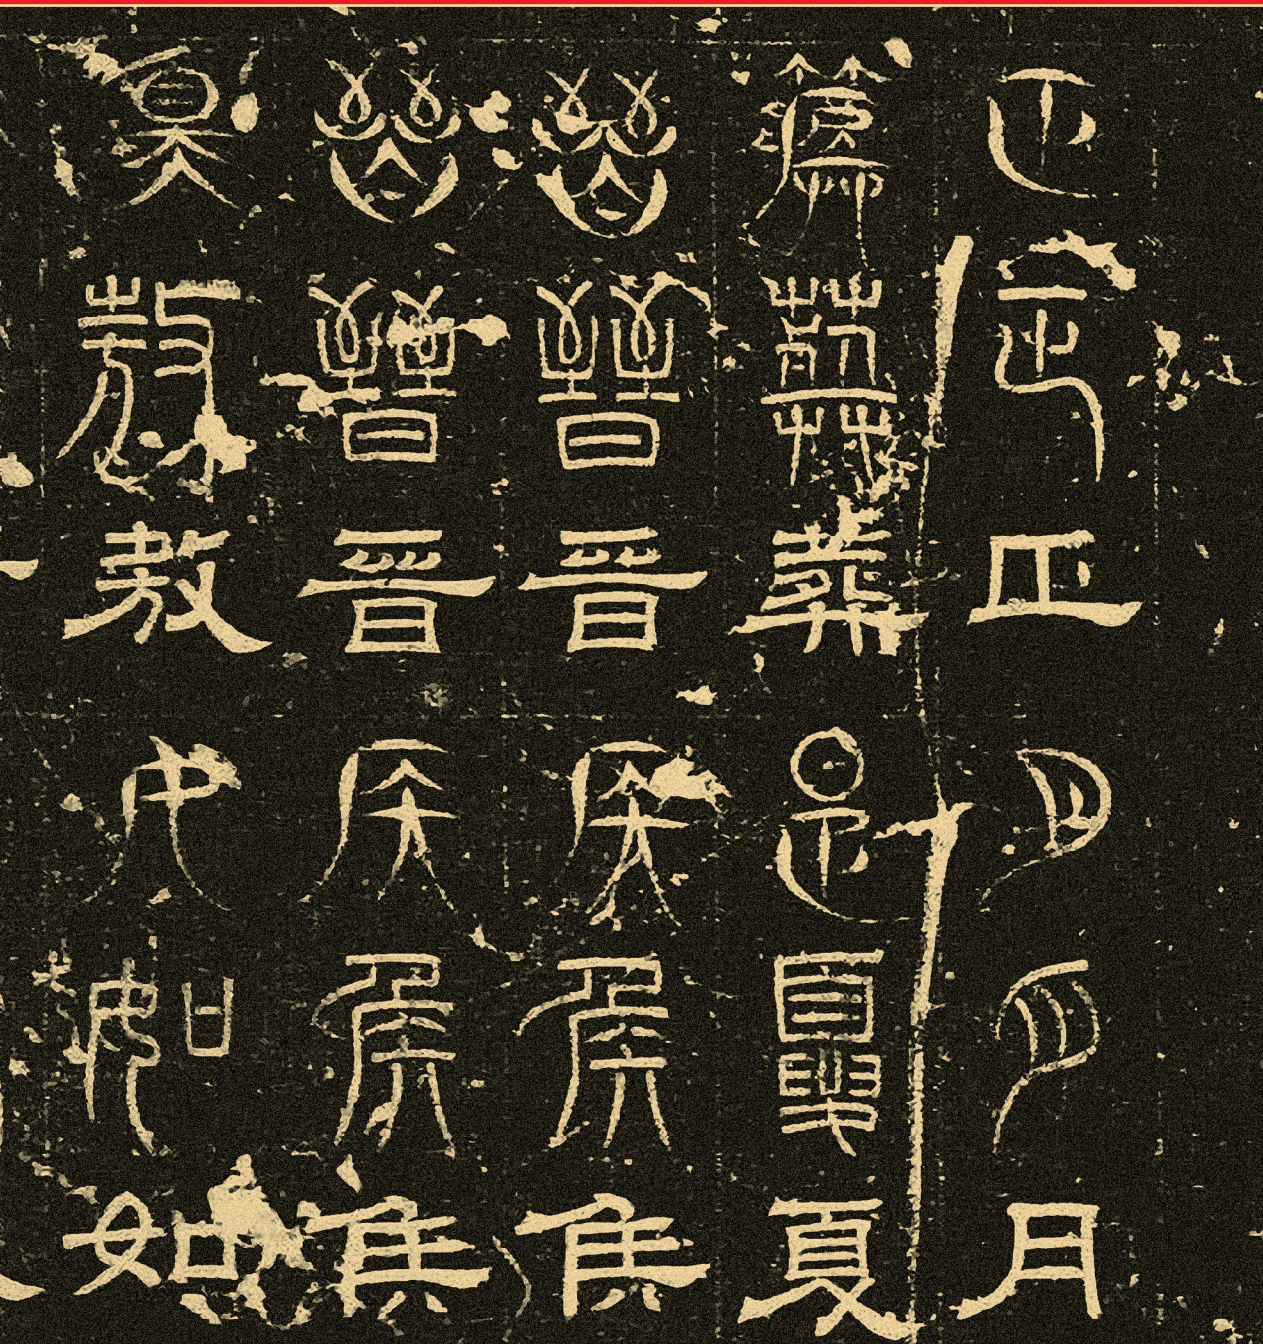 正正正月月月
葬葬葬夏夏夏
晉晉晉侯侯侯
晉晉晉侯侯侯
敖敖敖如如如